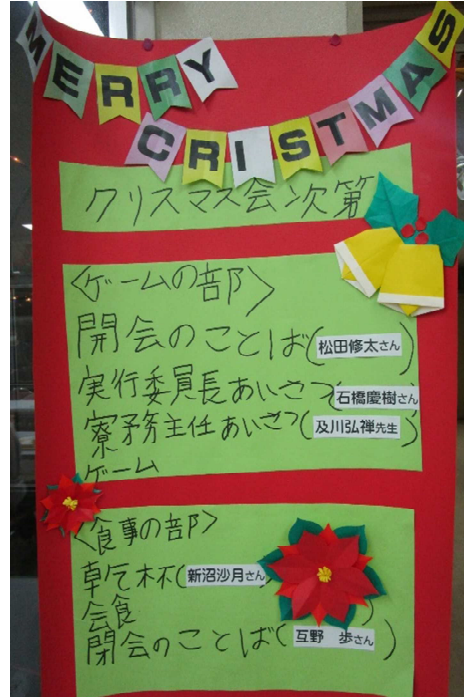 MERRY
CRISTMAS
クリスマス会次第
<ゲームの部>
開会のことば(松田修太さん)
実行委員長あいさつ(石橋慶樹さん)
寮務主任あいさつ(及川弘禅先生)
ゲーム
<食事の部>
乾杯(新沼沙月さん)
会食
閉会のことば(互野 歩さん)